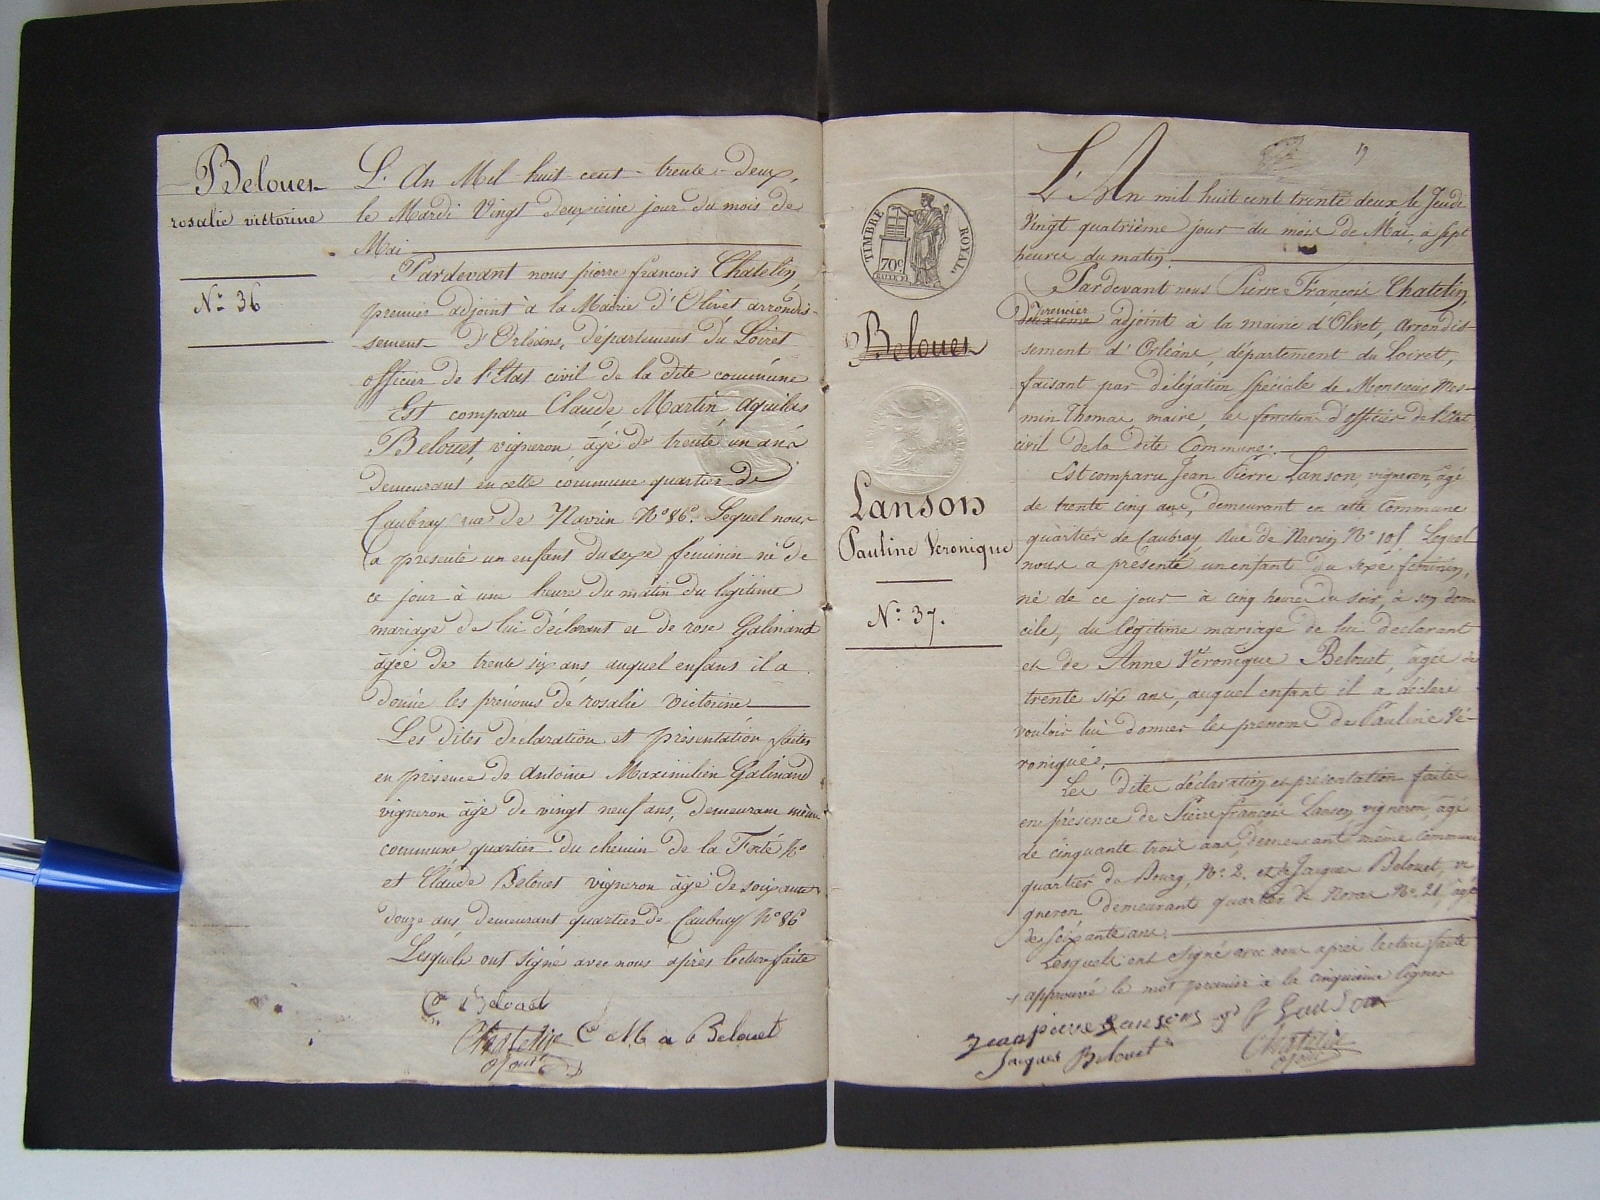 Belouet
rosalie victorine
N.° 36
L'An Mil huit cent trente-deux,
le Mardi Vingt deuxieme jour du mois de
Mai
Pardevant nous pierre francois Chatelin
premier adjoint à la Mairie d'Olivet arrondis-
sement d'Orléans, département du Loiret
officier de l'Etat civil de la dite commune
Est comparu Claude Martin Aquilas
Belouet, vigneron, âgé de trente un ans
demeurant en cette commune quartier de
Caubray rue de Navrin N° 86. Lequel nous
a presenté un enfant du sexe feminin né de
ce jour à une heure du matin du légitime
mariage de lui déclarant et de rose Galinand
âgée de trente six ans auquel enfant il a
donné les prénoms de rosalie victorine
Les dites declaration et présentation faites
en présence de Antoine Maximilien Galinand
vigneron âgé de vingt neuf ans, demeurant même
commune quartier du chemin de la Ferté N°
et Claude Belouet vigneron âgé de soixante
douze ans demeurant quartier de Caubray N° 86
Lesquels ont signé avec nous après lecture faite
Belouet
Chatelin C M a Belouet
adjoint
TIMBRE ROYAL
70c
Belouet
Lanson
Pauline Veronique
N.° 37.
19
L'An mil huit cent trente deux le Jeudi
Vingt quatrième jour du mois de Mai, à sept
heures du matin.
Pardevant nous Pierre François Chatelin
premier
deuxième adjoint à la mairie d'Olivet, arrondis-
sement d'Orléans, département du Loiret,
faisant par délégation spéciale de Monsieur Mes-
min Thomas, maire, les fonctions d'officier de l'état
civil de la dite Commune;
Est comparu Jean Pierre Lanson, vigneron, âgé
de trente cinq ans, demeurant en cette Commune
quartier de Caubray Rue de Navrin N° 105 Lequel
nous a présenté un enfant du sexe féminin,
né de ce jour à cinq heures du soir, à son domi
cile, du légitime mariage de lui declarant
et de Anne Véronique Belouet, âgée de
trente six ans, auquel enfant il a déclaré
vouloir lui donner les prénoms de Pauline Vé-
ronique.
Les dites déclaration et présentation faites
en présence de Pierre françois Lanson, vigneron, âgé
de cinquante trois ans, demeurant même Commune
quartier du Bourg, N° 2. et de Jacques Belouet, vi
gneron, demeurant quartier de N° 21, âgé
de soixante ans.
Lesquels ont signé avec nous après lecture faite
approuvé le mot premier à la cinquieme ligne
Jean pierre Lanson
Jacques Belouet Chatelin
adjoint